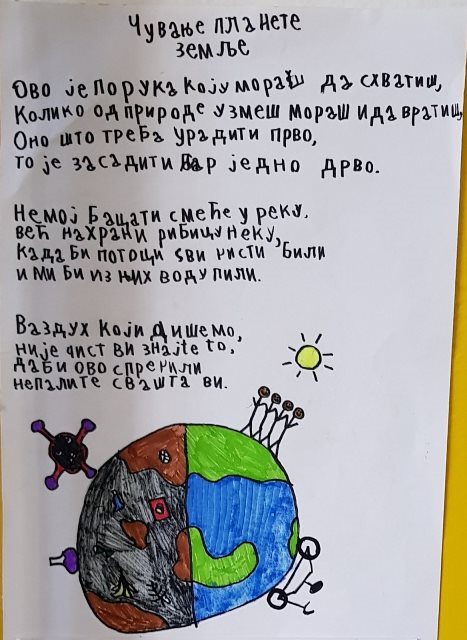 Чување планете
земље
Ово је порука коју мораш да схватиш,
Колико од природе узмеш мораш и да вратиш,
Оно што треба урадити прво,
то је засадити бар једно дрво.
Немој бацати смеће у реку,
већ нахрани рибицу неку,
када би потоци сви чисти били
и ми би из њих воду пили.
Ваздух који дишемо,
није чист ви знајте то,
да би ово спречили
непалите свашта ви.